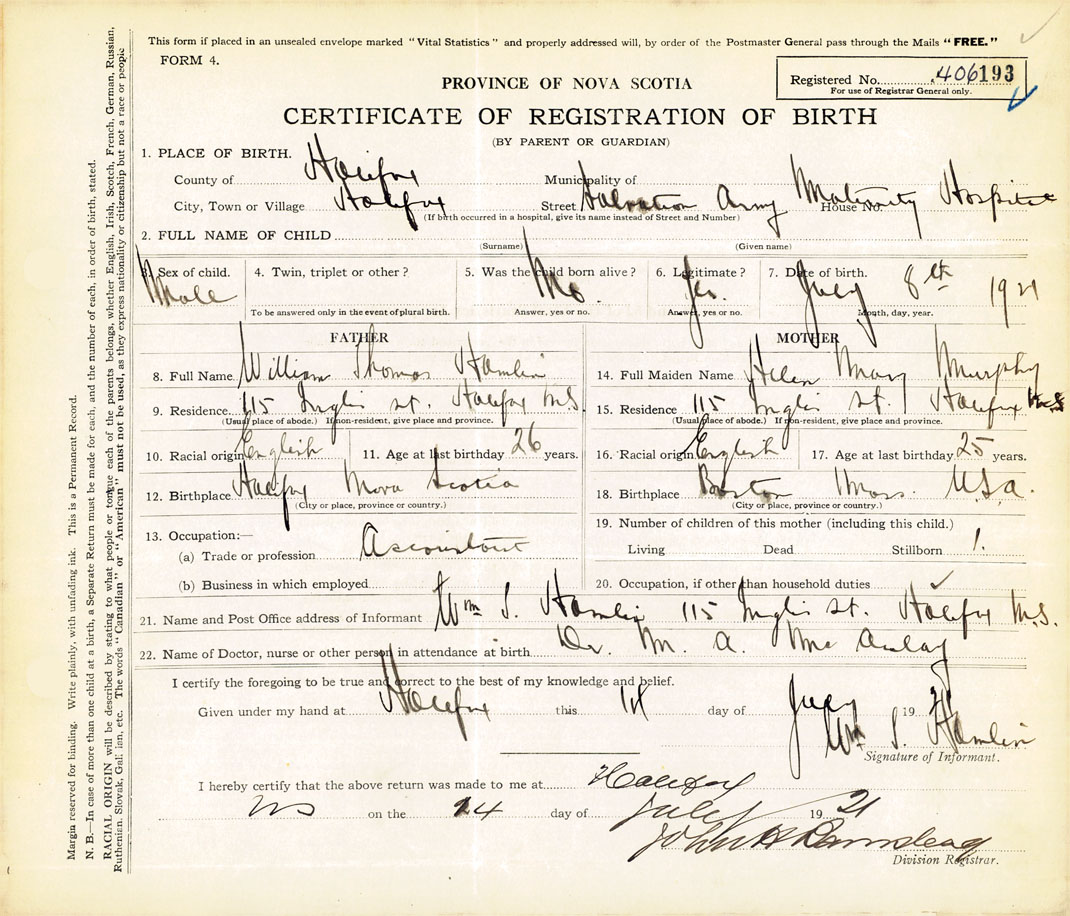 This form if placed in an unsealed envelope marked “Vital Statistics” and properly addressed will, by order of the Postmaster General pass through the Mails “FREE.”
FORM 4.
Registered No. 406193
For use of Registrar General only.
PROVINCE OF NOVA SCOTIA
CERTIFICATE OF REGISTRATION OF BIRTH
(BY PARENT OR GUARDIAN)
1. PLACE OF BIRTH.
County of Halifax Municipality of
City, Town or Village Halifax Street Salvation Army Maternity Hospital House No.
(If birth occurred in a hospital, give its name instead of Street and Number)
2. FULL NAME OF CHILD
(Surname) (Given name)
3. Sex of child. Male
4. Twin, triplet or other?
To be answered only in the event of plural birth.
5. Was the child born alive? No.
Answer, yes or no.
6. Legitimate? Yes.
Answer, yes or no.
7. Date of birth. July 8th 1921
Month, day, year.
FATHER
8. Full Name William Thomas Hamlin
9. Residence 115 Inglis St. Halifax N.S.
(Usual place of abode.) If non-resident, give place and province.
10. Racial origin English 11. Age at last birthday 26 years.
12. Birthplace Halifax Nova Scotia
(City or place, province or country.)
13. Occupation:—
(a) Trade or profession Accountant
(b) Business in which employed
MOTHER
14. Full Maiden Name Helen Mary Murphy
15. Residence 115 Inglis St. Halifax N.S.
(Usual place of abode.) If non-resident, give place and province.
16. Racial origin English 17. Age at last birthday 25 years.
18. Birthplace Boston Mass. U.S.A.
(City or place, province or country.)
19. Number of children of this mother (including this child.)
Living Dead Stillborn 1.
20. Occupation, if other than household duties
21. Name and Post Office address of Informant Wm T. Hamlin 115 Inglis St. Halifax N.S.
22. Name of Doctor, nurse or other person in attendance at birth Dr. M. A. McAulay
I certify the foregoing to be true and correct to the best of my knowledge and belief.
Given under my hand at Halifax this day of July 1921
Wm T. Hamlin
Signature of Informant.
I hereby certify that the above return was made to me at Halifax
NS on the 14 day of July 1921
John
Division Registrar.
Margin reserved for binding. Write plainly, with unfading ink. This is a Permanent Record.
N. B.—In case of more than one child at a birth, a Separate Return must be made for each, and the number of each, in order of birth, stated.
RACIAL ORIGIN will be described by stating to what people or tongue each of the parents belongs, whether English, Irish, Scotch, French, German, Russian,
Ruthenian, Slovak, Galician, etc. The words “Canadian” or “American” must not be used, as they express nationality or citizenship but not a race or people